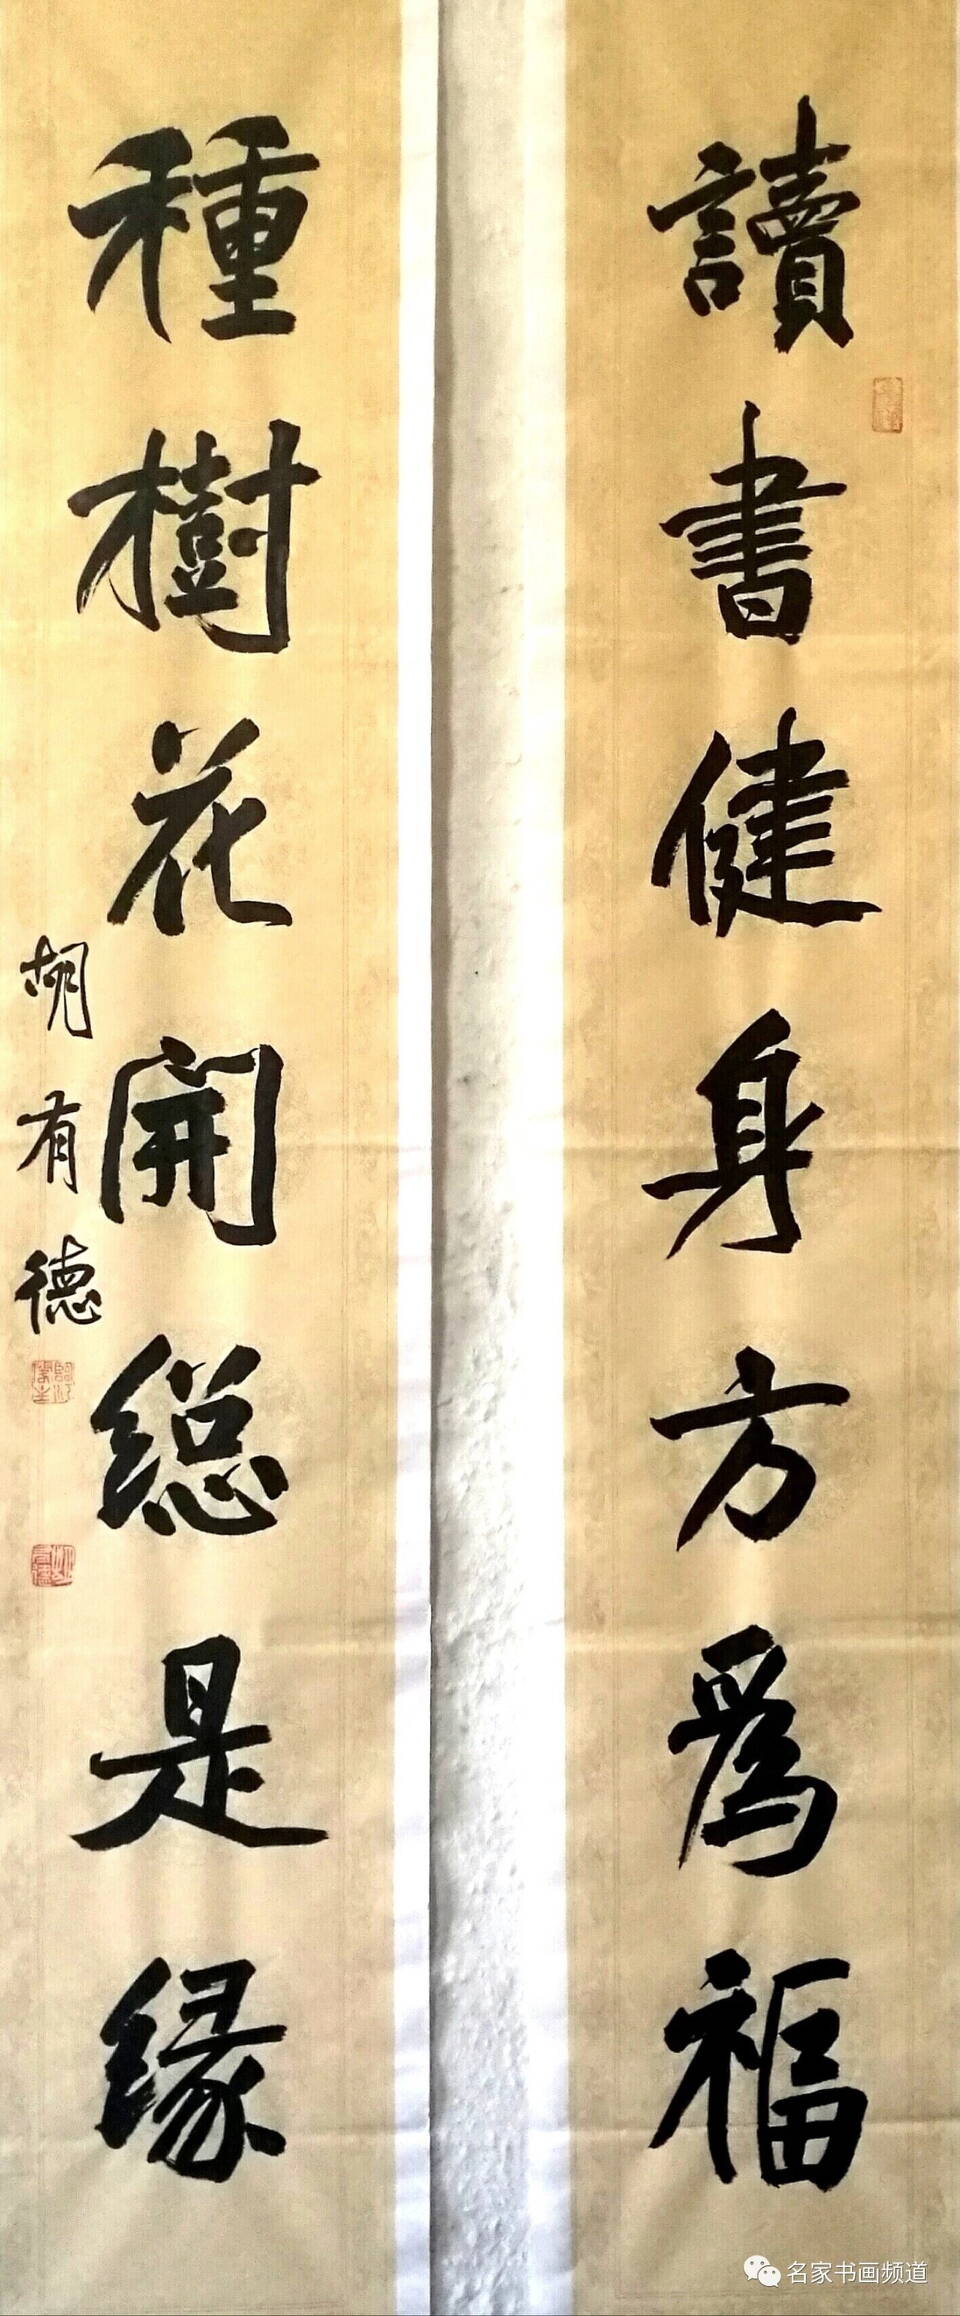 讀書健身方爲福
種樹花開總是缘
胡有德
名家书画频道